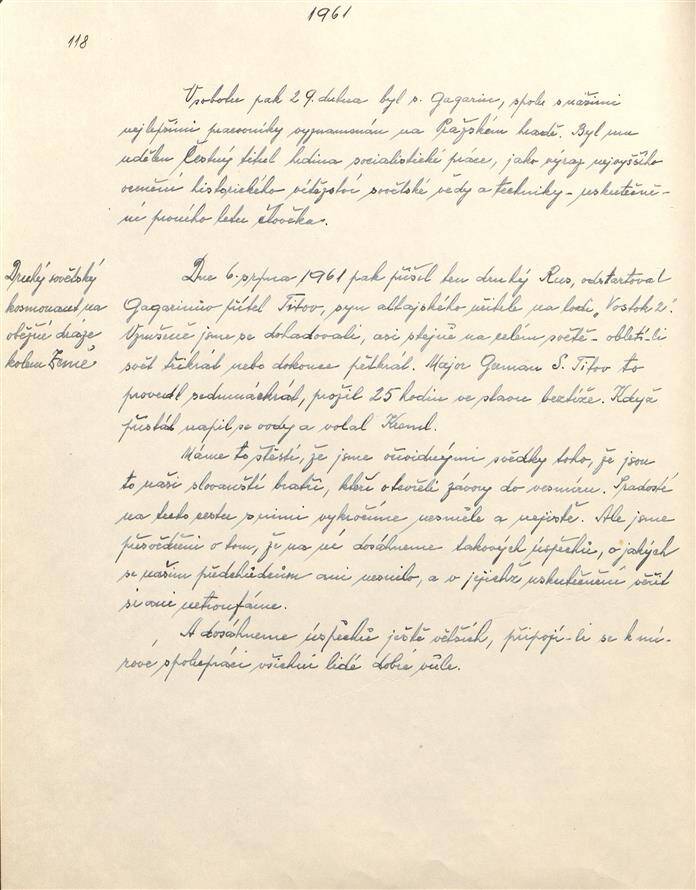 1961
118
V sobotu pak 29. dubna byl s. Gagarin, spolu s našimi
nejlepšími pracovníky vyznamenán na Pražském hradě. Byl mu
udělen Čestný titul hrdina socialistické práce, jako výraz nejvyššího
ocenění historického vítězství sovětské vědy a techniky - uskutečně-
ní prvního letu člověka.
Druhý sovětský
kosmonaut na
oběžné dráze
kolem Země
Dne 6. srpna 1961 pak přišel ten druhý Rus, odstartoval
Gagarinův přítel Titov, syn altajského učitele na lodi „Vostok 2".
Vzrušeně jsme se dohadovali, asi stejně na celém světě - obletí-li
svět třikrát nebo dokonce pětkrát. Major German S. Titov to
provedl sedmnáctkrát, prožil 25 hodin ve stavu beztíže. Když
přistál napil se vody a volal Kreml.
Máme to štěstí, že jsme očividnými svědky toho, že jsou
to naši slovanští bratři, kteří otevřeli závory do vesmíru. S radostí
na tuto cestu s nimi vykročíme nesměle a nejistě. Ale jsme
přesvědčeni o tom, že na ní dosáhneme takových úspěchů, o jakých
se našim předchůdcům ani nesnilo, a v jejichž uskutečnění věřit
si ani netroufáme.
A dosáhneme úspěchů ještě větších, připojí-li se k mí-
rové spolupráci všichni lidé dobré vůle.